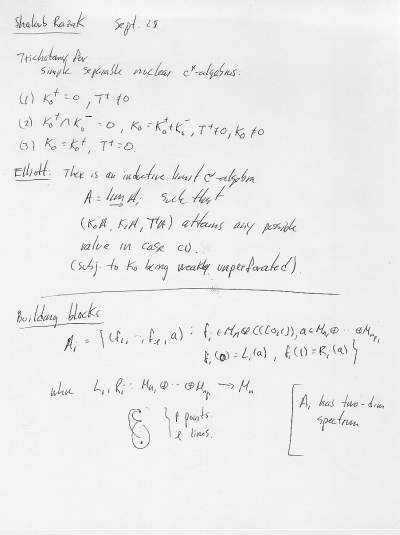 Shaloub Razak Sept. 28
Trichotomy for
simple separable nuclear C*-algebras:
(1) K₀⁺ = 0, T⁺ ≠ 0
(2) K₀⁺ ∩ K₀⁻ = 0, K₀ = K₀⁺ + K₀⁻, T⁺ ≠ 0, K₀ ≠ 0
(3) K₀ = K₀⁺, T⁺ = 0.
Elliott: There is an inductive limit C*-algebra
A = lim Aᵢ such that
(K₀A, K₁A, T⁺A) attains any possible
value in case (1).
(subj. to K₀ being weakly unperforated).
Building blocks
Aᵢ = {(f₁, ..., fₑ, a) : fᵢ ∈ Mₙ ⊗ C([0,1]), a ∈ Mₙ₁ ⊕ ... ⊕ Mₙₚ,
fᵢ(0) = Lᵢ(a), fᵢ(1) = Rᵢ(a)}
where Lᵢ, Rᵢ : Mₙ₁ ⊕ ... ⊕ Mₙₚ → Mₙ
p points
l lines.
Aᵢ has two-dim
spectrum